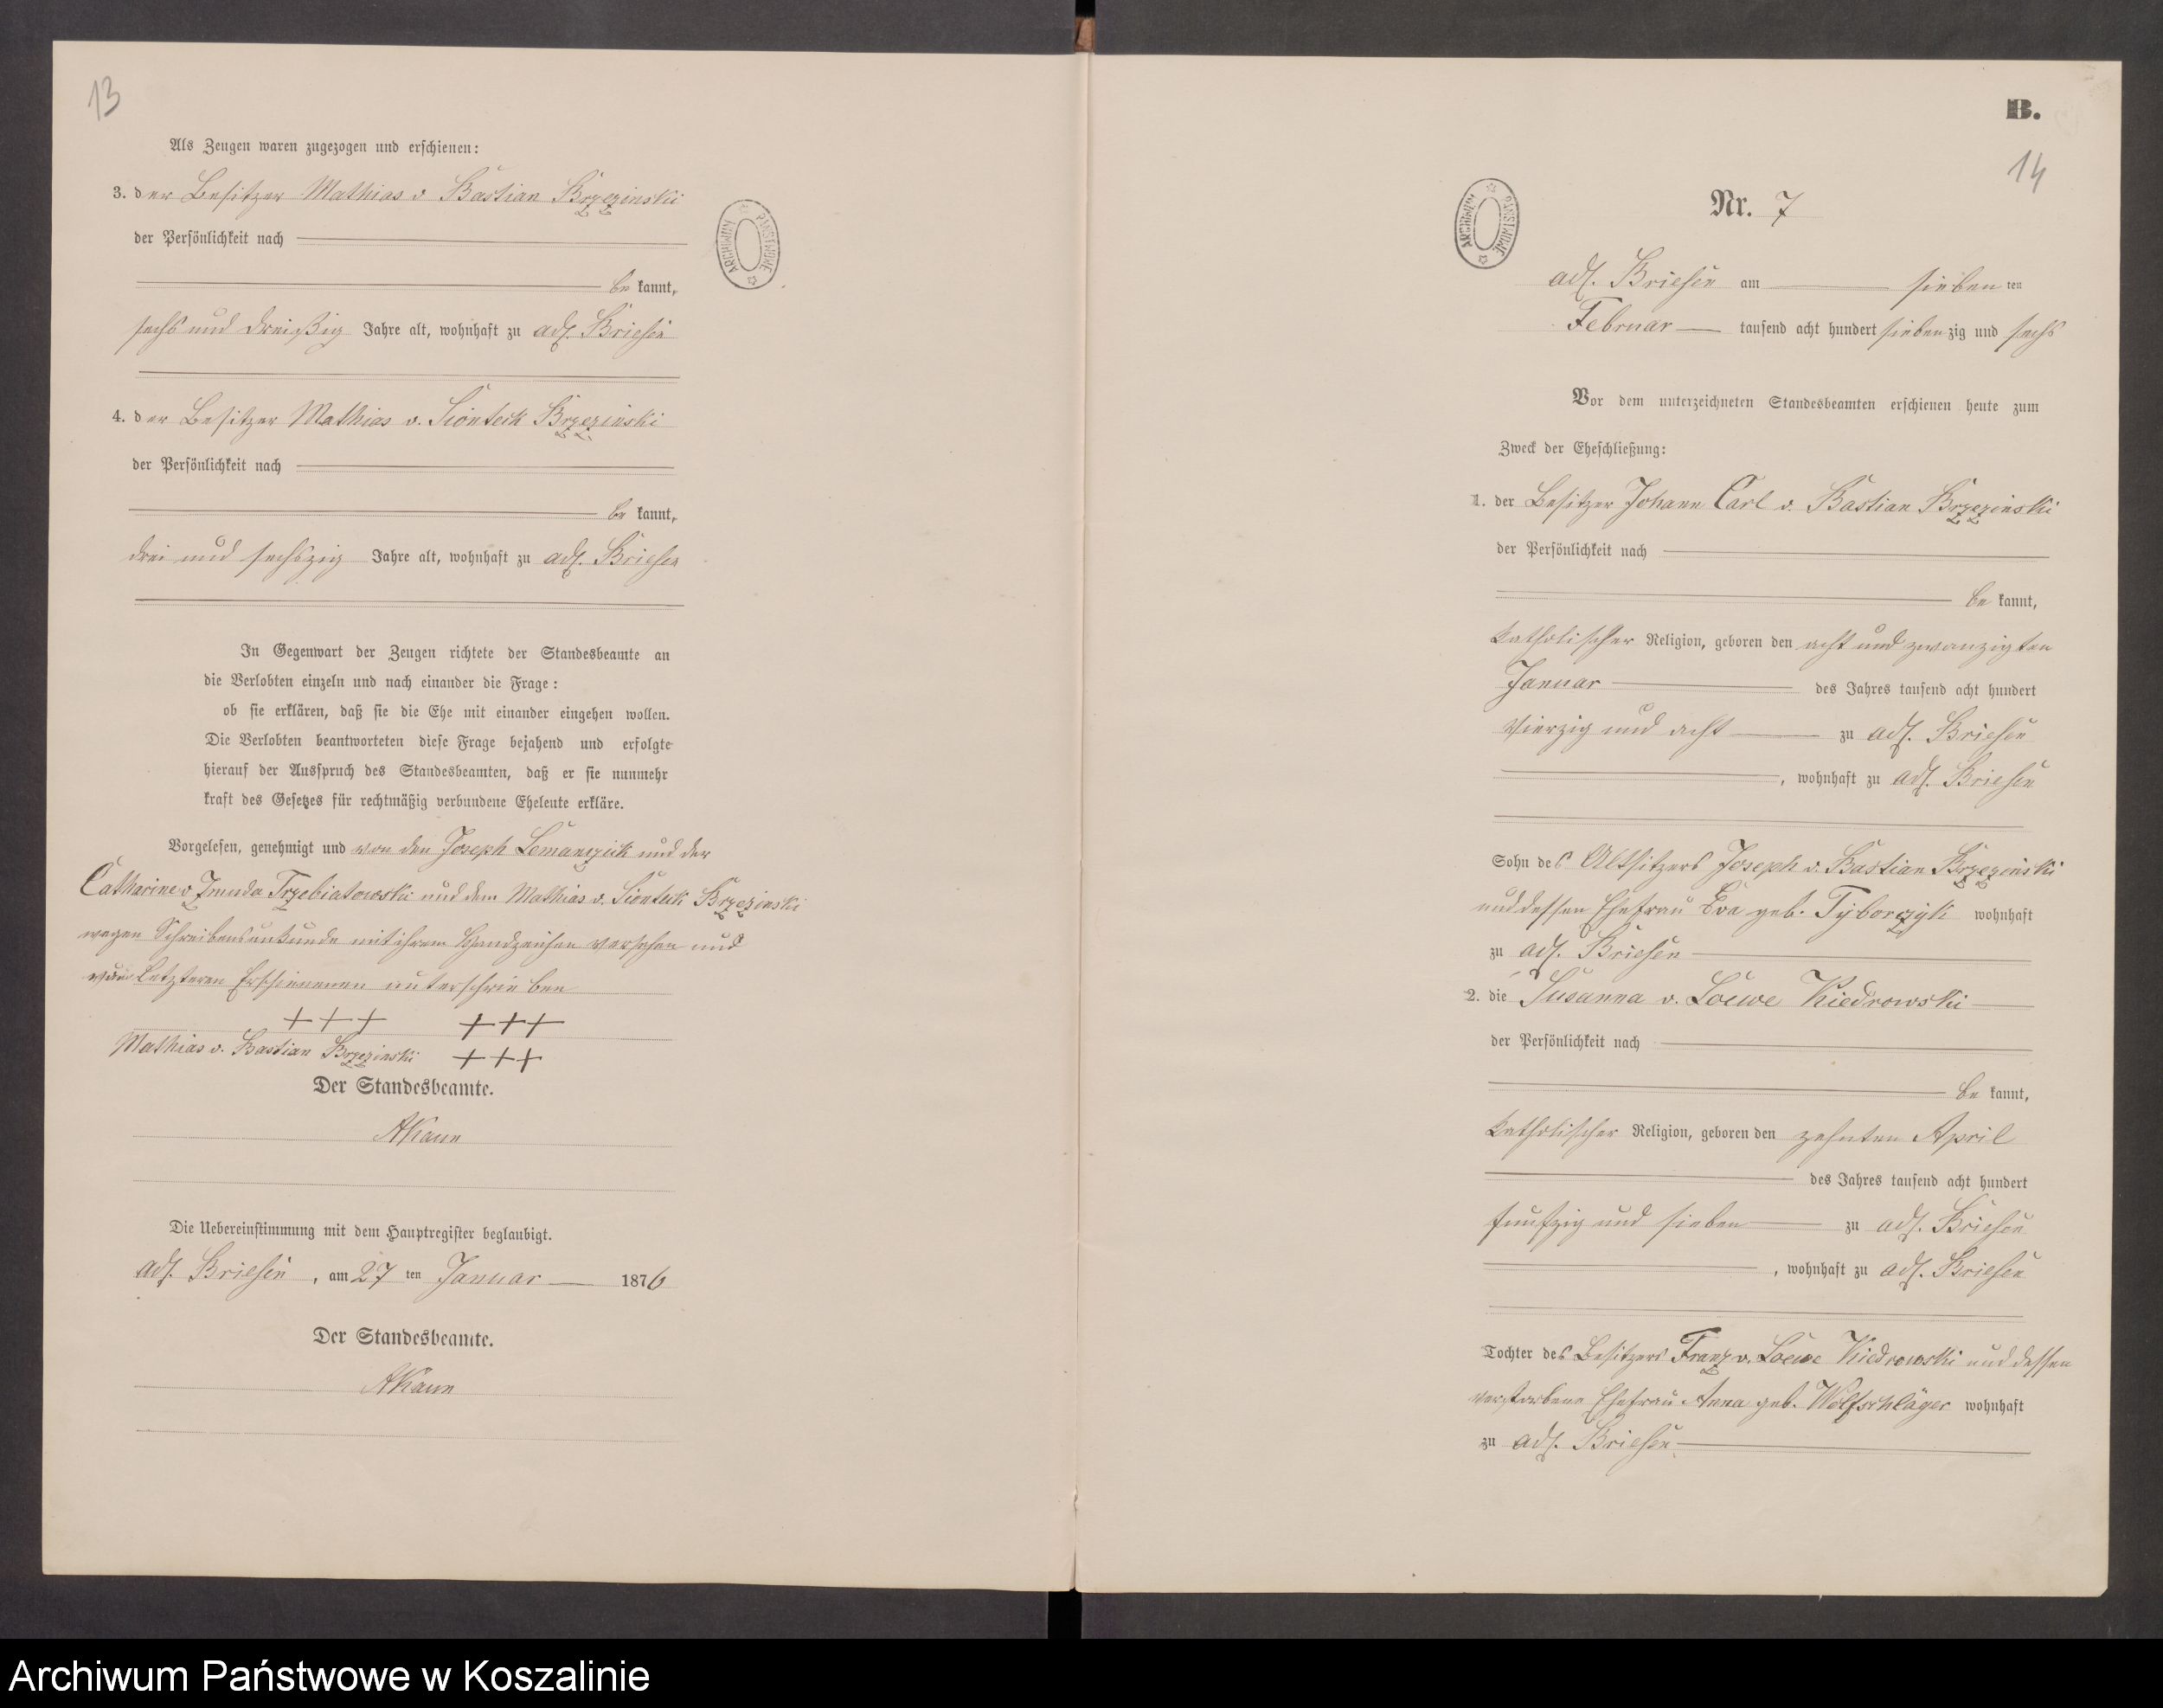 13
Als Zeugen waren zugezogen und erschienen:
3. der Besitzer Mathias v. Bastian Brzezinski
der Persönlichkeit nach
bekannt,
sechs und dreißig Jahre alt, wohnhaft zu adl. Briesen
4. der Besitzer Mathias v. Sionteck Brzezinski
der Persönlichkeit nach
bekannt,
drei und sechszig Jahre alt, wohnhaft zu adl. Briesen
In Gegenwart der Zeugen richtete der Standesbeamte an
die Verlobten einzeln und nach einander die Frage:
ob sie erklären, daß sie die Ehe mit einander eingehen wollen.
Die Verlobten beantworteten diese Frage bejahend und erfolgte
hierauf der Ausspruch des Standesbeamten, daß er sie nunmehr
kraft des Gesetzes für rechtmäßig verbundene Eheleute erkläre.
Vorgelesen, genehmigt und von den Joseph Lemanczik und der
Catharine v Zmuda Trzebiatowski und dem Mathias v. Sionteck Brzezinski
wegen Schreibensunkunde mit ihrem Handzeichen versehen und
von Letzteren Erschienenen unterschrieben
+++ +++
Mathias v. Bastian Brzezinski +++
Der Standesbeamte.
Die Uebereinstimmung mit dem Hauptregister beglaubigt.
adl. Briesen, am 27 ten Januar 1876
Der Standesbeamte.
ARCHIWUM PAŃSTWOWE
B.
14
ARCHIWUM PAŃSTWOWE
Nr. 7
adl. Briesen am siebenten
Februar tausend acht hundert siebenzig und sechs
Vor dem unterzeichneten Standesbeamten erschienen heute zum
Zweck der Eheschließung:
1. der Besitzer Johann Carl v. Bastian Brzezinski
der Persönlichkeit nach
bekannt,
katholischer Religion, geboren den acht und zwanzigten
Januar des Jahres tausend acht hundert
vierzig und acht zu adl. Briesen
, wohnhaft zu adl. Briesen
Sohn des Altsitzers Joseph v. Bastian Brzezinski
und dessen Ehefrau Eva geb. Tyborczyk wohnhaft
zu adl. Briesen
2. die Susanna v. Loewe Kiedrowski
der Persönlichkeit nach
bekannt,
katholischer Religion, geboren den zehnten April
des Jahres tausend acht hundert
funfzig und sieben zu adl. Briesen
, wohnhaft zu adl. Briesen
Tochter des Besitzers Franz v. Loewe Kiedrowski und dessen
verstorbene Ehefrau Anna geb. Wolfschläger wohnhaft
zu adl. Briesen
Archiwum Państwowe w Koszalinie